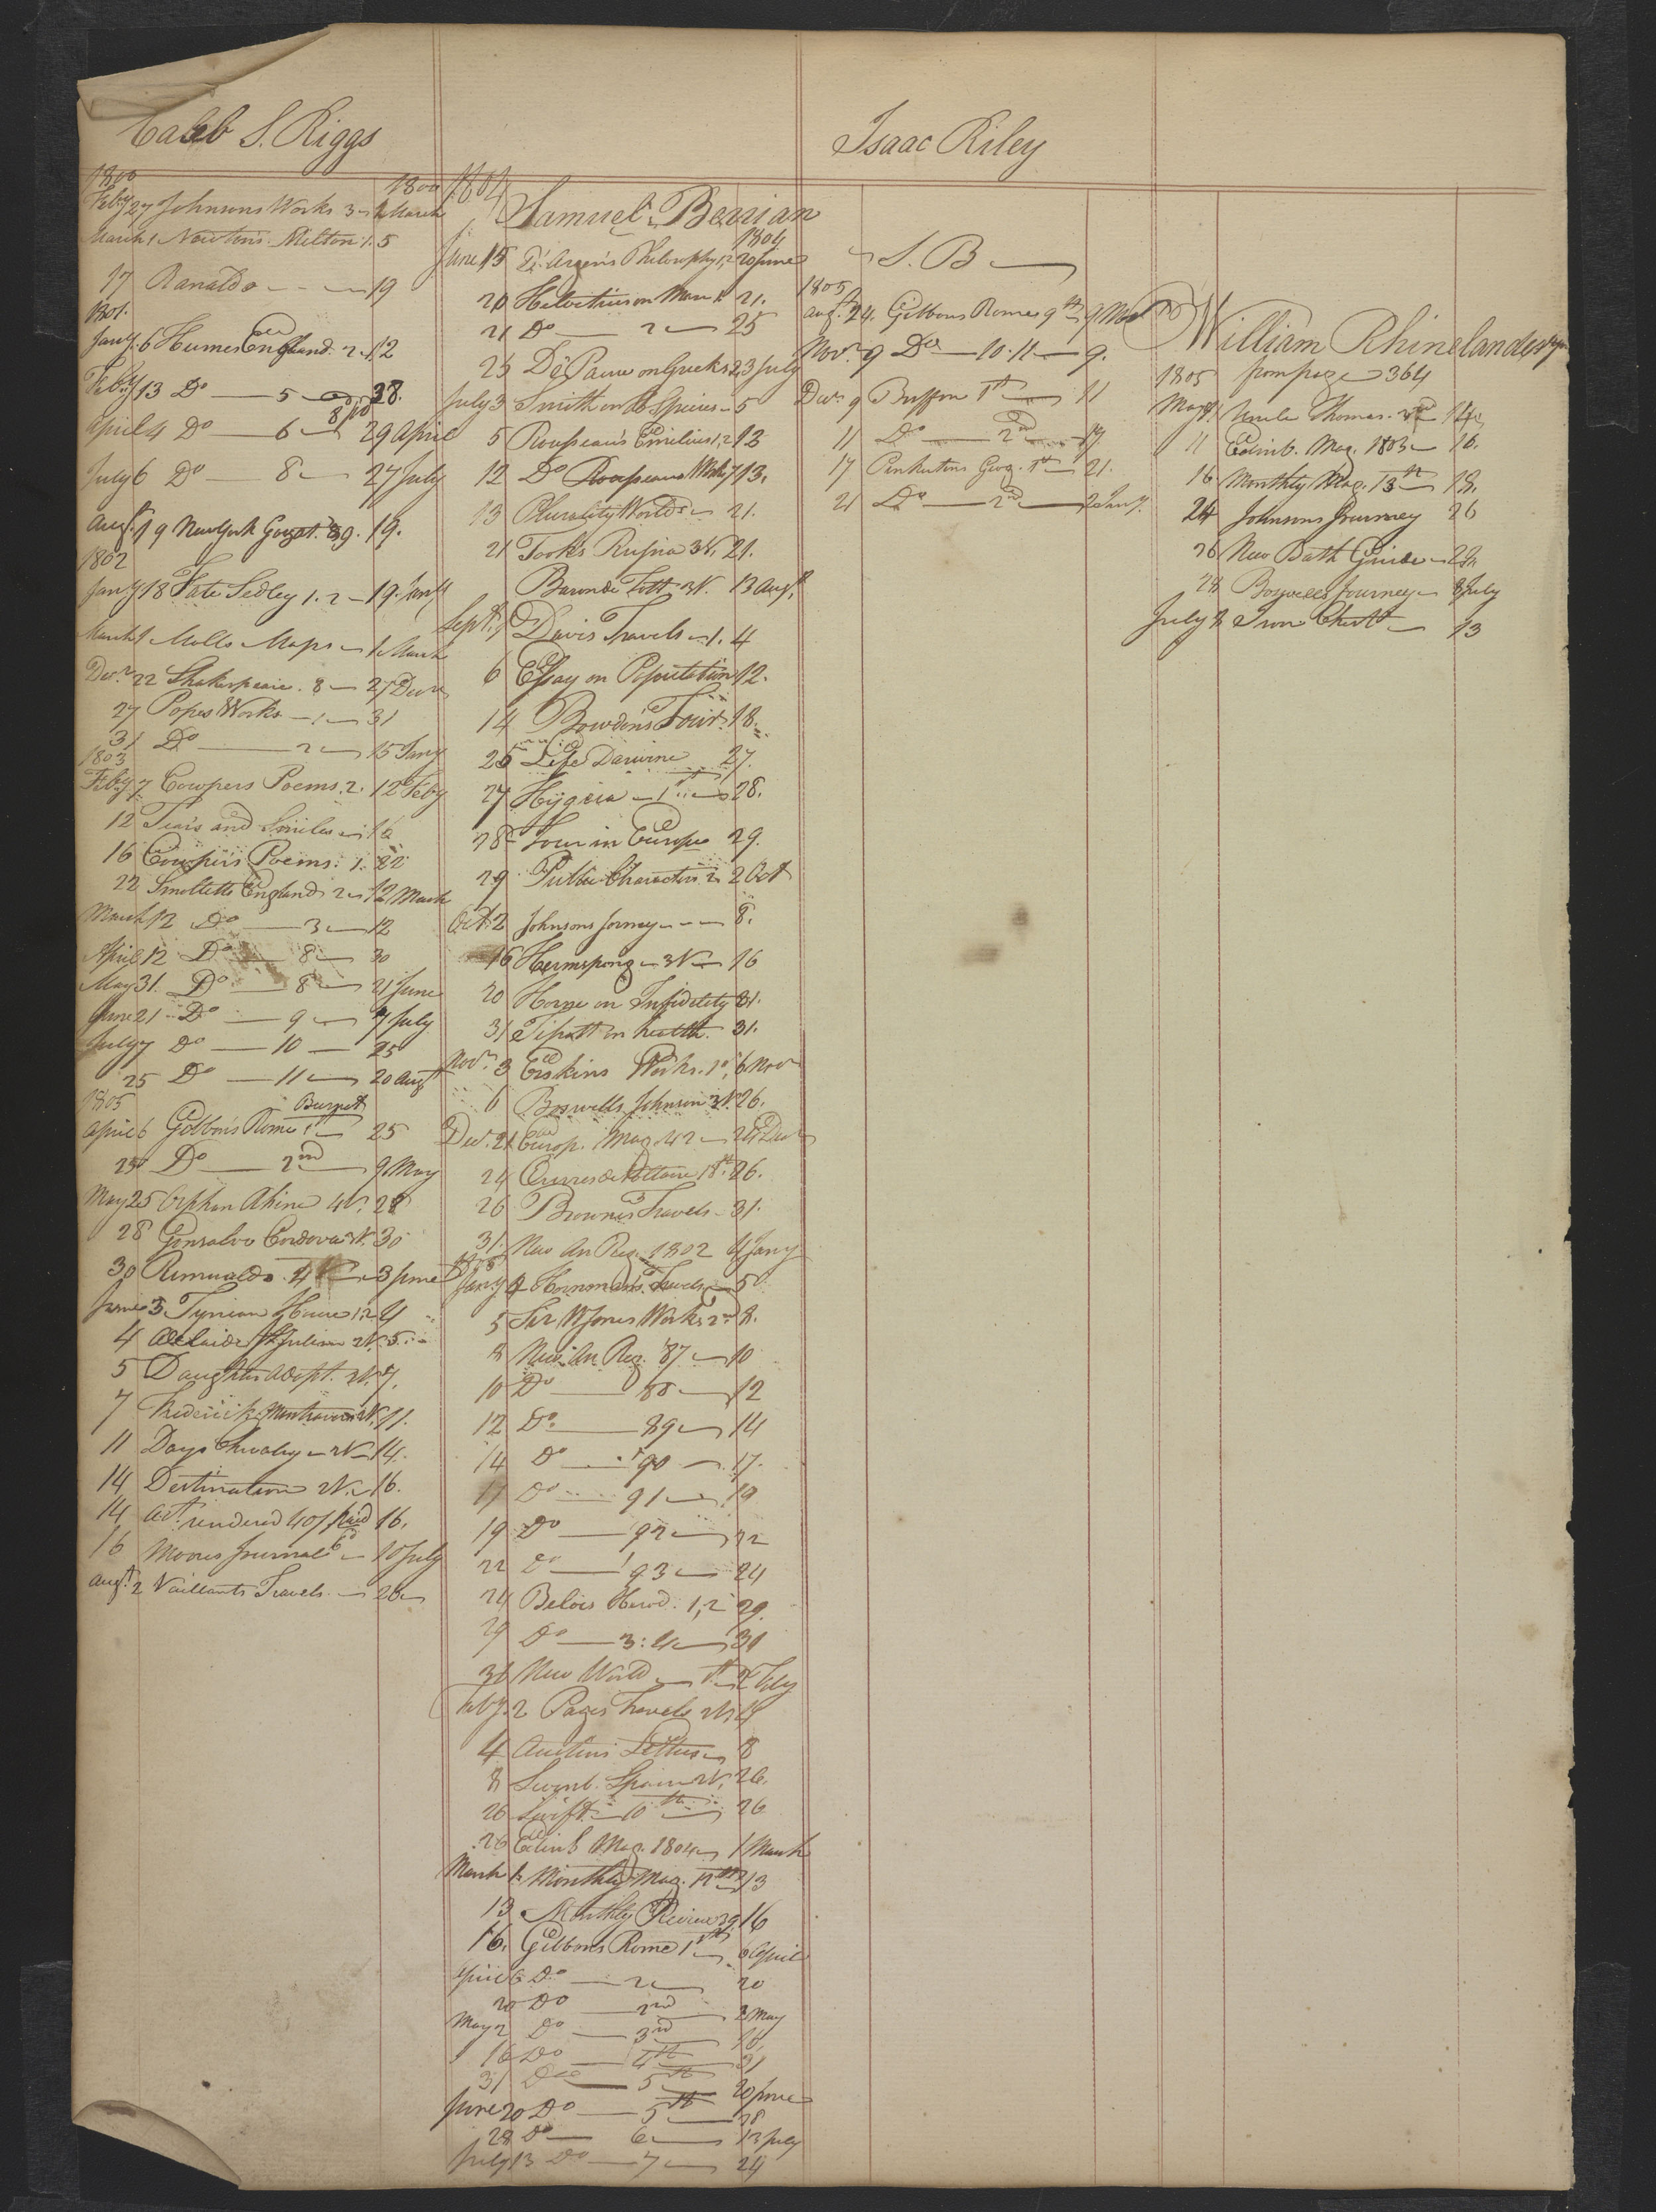 Caleb S. Riggs
1800 1800
Feby 27 Johnsons Works 3 1 March
March 1 Newton's Milton 1. 5
17 Ranaldo 19
1801.
Jany. 6 Humes England. 2. 12
Feby 13 Do 5 28.
April 4 Do 6 29 April
July 6 Do 8 27 July
Augt. 19 New York Gazet. 89. 19.
1802
Jany 18 Fate Sedley 1. 2 19. Jany
March 1 Molls Maps 1 March
Decr. 22 Shakespeare. 8 27 Decr
27 Popes Works 1 31
31 Do 2 15 Jany
1803
Feby 7 Cowpers Poems. 2. 12 Feby
12 Tears and Smiles 16
16 Cowpers Poems. 1. 22
22 Smolletts England 2 12 March
March 12 Do 3 12
April 12 Do 8 30
May 31. Do 8 21 June
June 21 Do 9 7 July
July 7 Do 10 25
25 Do 11 20 Augt
1805 Burnet
April 6 Gibbons Rome 1st 25
25 Do 2nd 9 May
May 25 Orphan Rhine 4V. 28
28 Gonsalvo Cordova 2V. 30
30 Rimualdo. 3 June
June 3 Tynian House 1. 2 4
4 Adelaide St Julian 2V. 5
5 Daughter Adopt. 2V. 7.
7 Frederick 2V. 11.
11 Days Chivalry 2V 14.
14 Destination 2V. 16.
14 Act. rendered 40/ paid 16.
16 Moores Journal 10 July
Augt. 2 Vaillants Travels 26
1804
Samuel Berrian
1804
June 15 D'Argen's Philosophy 1,2 20 June
20 Helvetius on Man 1. 21.
21 Do 2 25
25 De Pauw on Greeks 2, 3 July
July 3 Smith on Species 5
5 Rousseau's Emilius 1, 2 12
12 Do Rousseaus Works 7 13.
13 Plurality Worlds 21.
21 Took's Russia 3V. 21.
Baron de Tott 2V. 13 Augt.
Sept. 1 Davis Travels 1. 4
6 Essay on Population 12.
14 Bowdens Tour 18.
25 Life Darwine 27.
27 Hygeia 1st 28.
28 Tour in Europe 29.
29 Public Characters 2 2 Oct
Oct. 2 Johnsons Jorney 8.
16 Hermsprong 3V 16
20 Horne on Infidelity 31.
31 Tissott on health 31.
Novr. 3 Erskins Works. 10. 6 Novr
6 Boswells Johnson 3V. 26.
Decr. 21 Europ. Mag. 42 24 Decr
24 Ouvres de Voltaire 18. 26.
26 Browns Travels 31.
31. New An Reg. 1802 4 Jany
1805
Jany 4 Hornman's Travels 5
5 Sir W Jones Works 2nd 8.
8 New An Reg. 87 10
10 Do 88 12
12 Do. 89 14
14 Do 90 17.
17 Do 91 19
19 Do 92 22
22 Do 93 24
24 Belois Herod. 1,2 29.
29 Do 3:4 31
31 New World 1st 2 Feby
Feby. 2 Pages Travels 2V. 4
4 Austins Letters 8
8 Swinb. Spain 2V. 26.
26 Swift 10th 26
26 Edinb Mag. 1804 1 March
March 1. Monthly Mag. 17th 13
13 Monthly Review 39. 16
16. Gibbons Rome 1st 6 April
April 6 Do 2 20
20 Do 2nd 2 May
May 2 Do 3rd 16.
16 Do 4th 31
31 Do 5th 20 June
June 20 Do 5th 28
28 Do 6 13 July
July 13 Do 7 24
Isaac Riley
S. B
1805
Augt. 24. Gibbons Rome 9th 9 Novr
Novr. 9 Do 10. 11. 9.
Decr. 9 Buffon 1st 11
11 Do 2nd 17
17 Pinkertons Geog. 1st 21.
21 Do 2nd 2 Jany.
William Rhinelander
1805 from page 364
May 9 Uncle Thomas. 2nd 14.
11 Edinb. Mag. 1803 16.
16 Monthly Mag. 13th 18.
24 Johnsons Journey 26
26 New Bath Guide 28.
28 Boswells Journey 8 July
July 8 Iron Chest 13